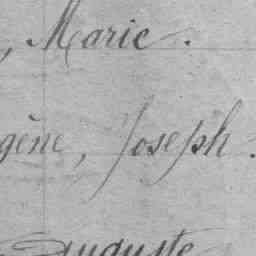 , Marie.
gène, Joseph.
Auguste